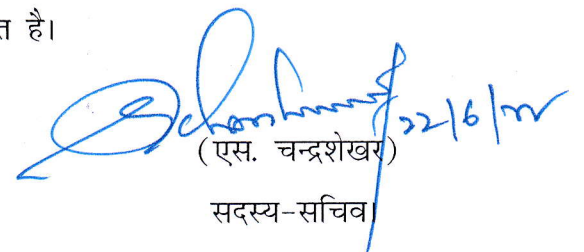 त है।
22/6/22
(एस. चन्द्रशेखर)
सदस्य-सचिव।